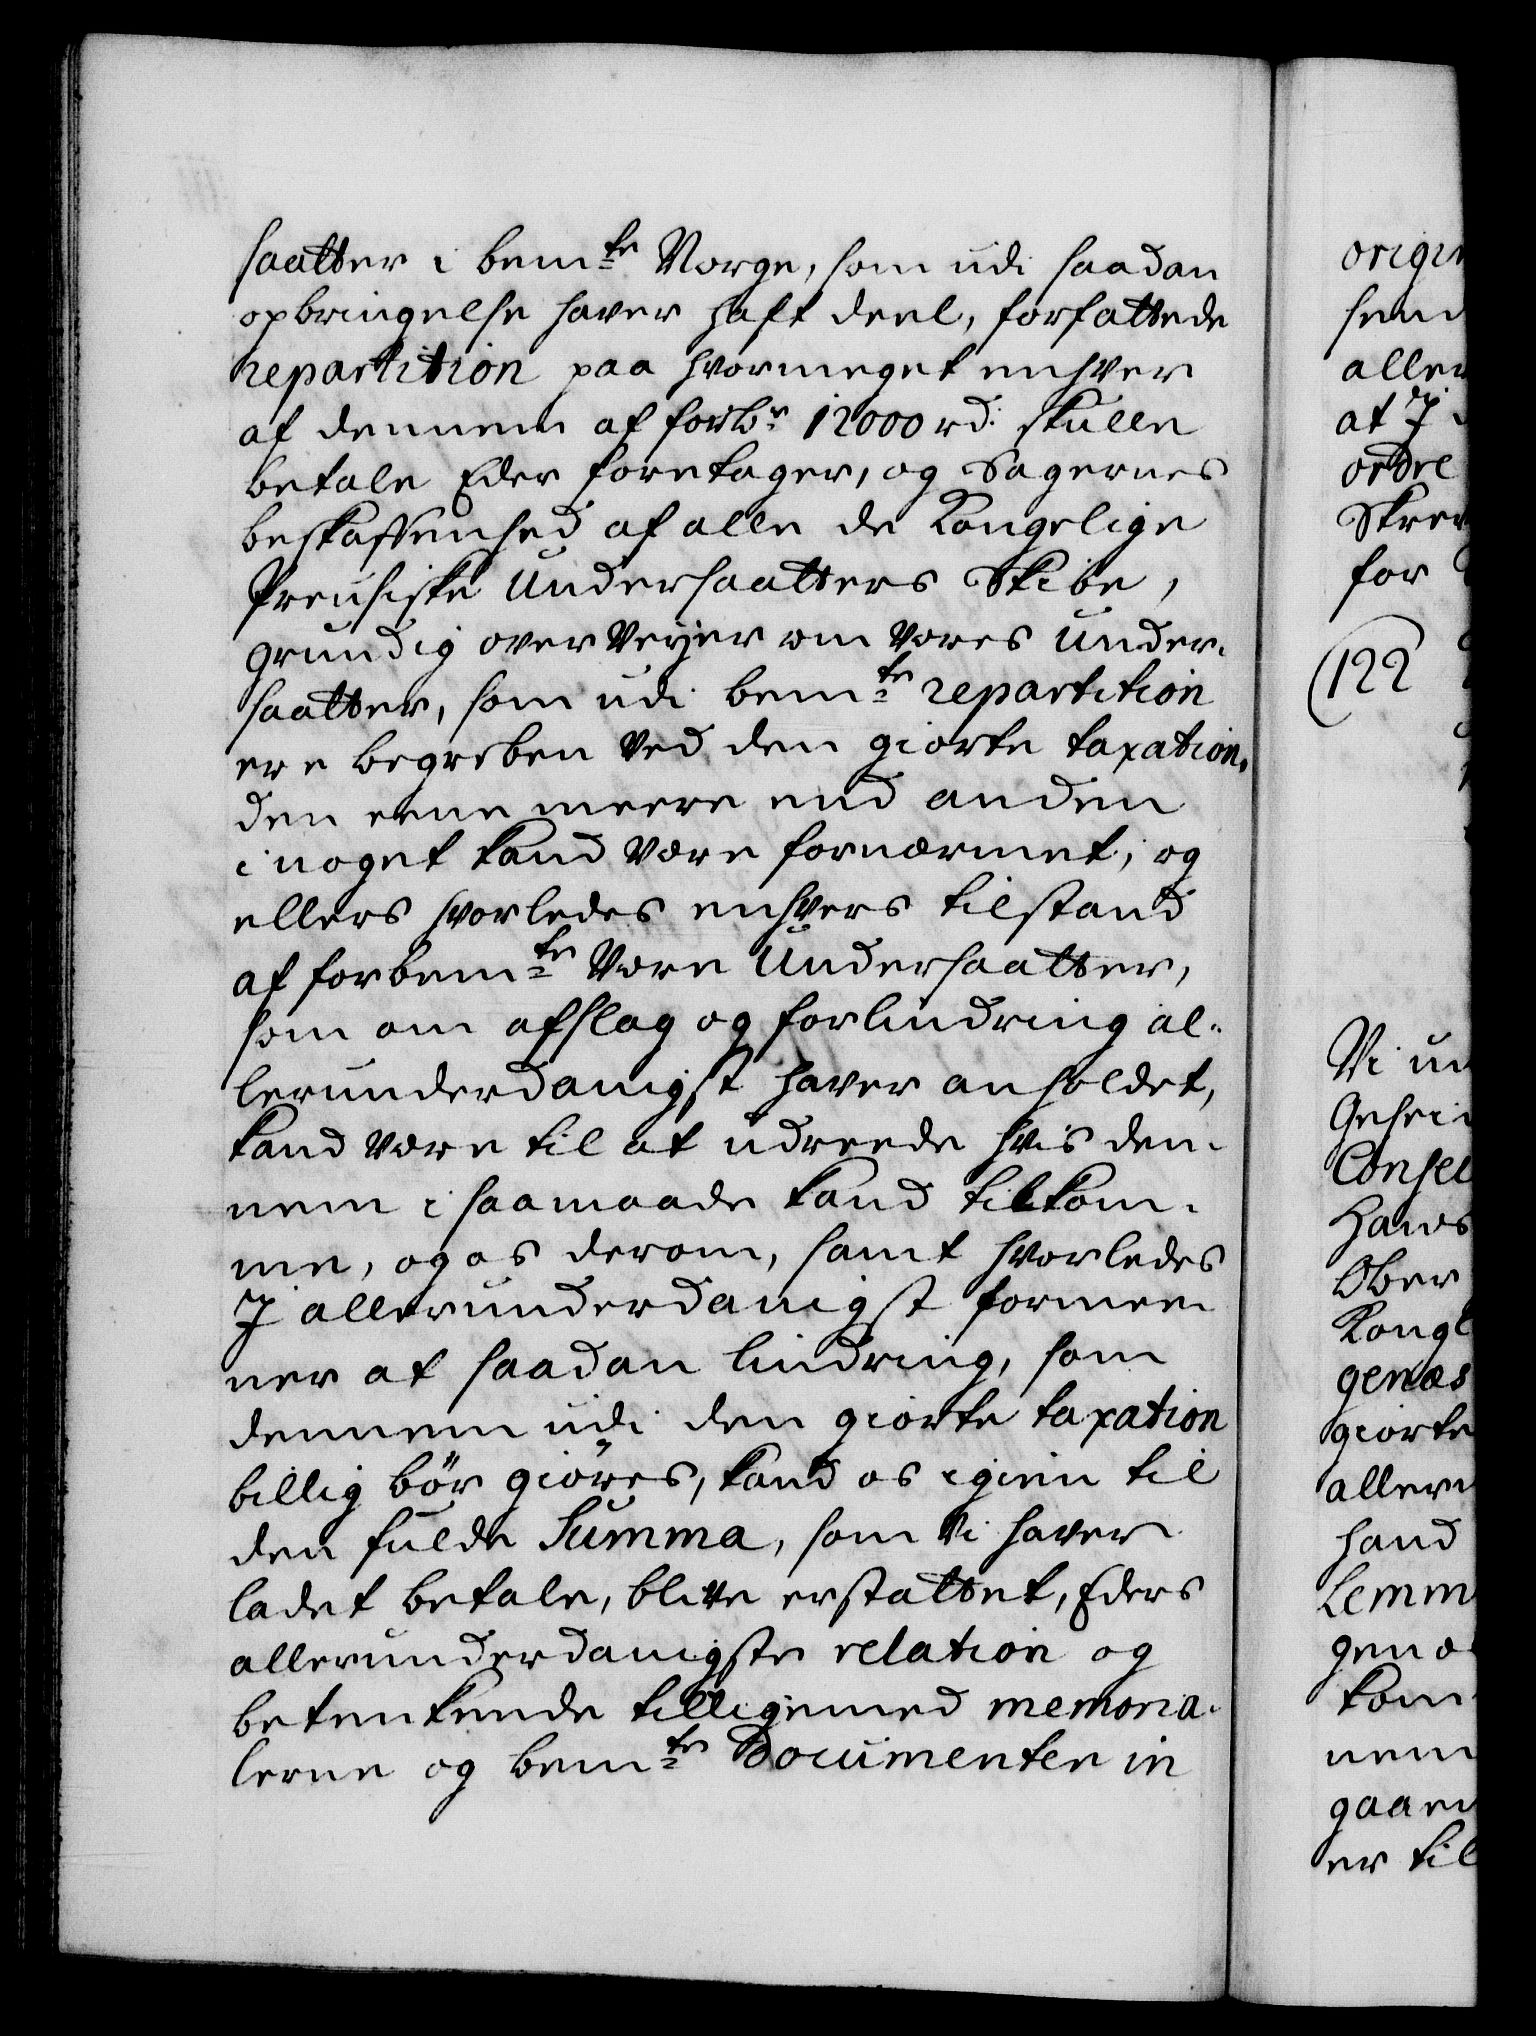 saatter i bem:te Norge, som udi saadan
opbringelse haver haft deel, forfattede
repartition paa hvormeget enhver
af dennem af forb:e 12000 rd: skulle
betale Eder foretager, og Sagernes
beskaffenhed af alle de Kongelige
Preusiske Undersaatters Skibe,
grundig overveyer om vores Under-
saatter, som udi bem:te repartition
ere begreben ved den giorte taxation,
den eene meere end anden
i noget kand være fornærmet, og
ellers hvorledes enhvers tilstand
af forbem:te Vore Undersaatter,
som om afslag og forlindring al-
lerunderdanigst haver anholdet,
kand være til at udreede hvis den-
nem i saamaade kand tilkom-
me, og os derom, samt hvorledes
J allerunderdanigst formee-
ner at saadan lindring, som
dennem udi den giorte taxation
billig bør giøres, kand os igien til
den fulde Summa, som Vi haver
ladet betale, blive erstattet, Eders
allerunderdanigste relation og
betenkende tilligemed memoria-
lerne og bem:te Documenter in
origin
send
aller
at J
ordre
Skrev
for
(122
Vi un
Gehei
Consei
Hans
Ober
Kongl
genæs
giorte
aller
hand
Lemm
gen
kom
nem
gaaen
er til